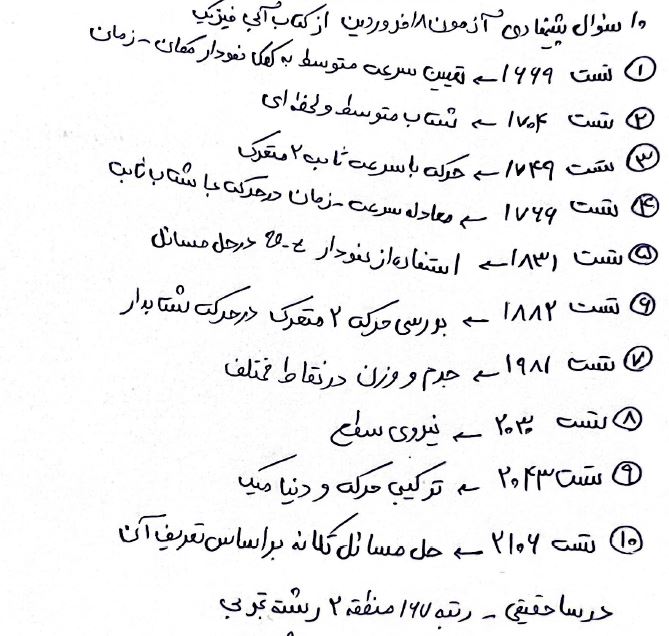 ۱۰ سؤال پیشنهادی آزمون ۸ فروردین از کتاب آبی فیزیک
① تست ۱۶۶۹ ← تعیین سرعت متوسط به کمک نمودار مکان - زمان
② تست ۱۷۰۴ ← شتاب متوسط و لحظه‌ای
③ تست ۱۷۴۹ ← حرکت با سرعت ثابت ۲ متحرک
④ تست ۱۷۶۹ ← معادله سرعت - زمان در حرکت با شتاب ثابت
⑤ تست ۱۸۳۱ ← استفاده از نمودار v-t در حل مسائل
⑥ تست ۱۸۸۲ ← بررسی حرکت ۲ متحرک در حرکت شتابدار
⑦ تست ۱۹۸۱ ← جرم و وزن در نقاط مختلف
⑧ تست ۲۰۲۰ ← نیروی سطح
⑨ تست ۲۰۴۳ ← ترکیب حرکت و دینامیک
⑩ تست ۲۱۰۶ ← حل مسائل تکانه براساس تعریف آن
درسا حقیقی - رتبه ۱۶۷ منطقه ۲ رشته تجربی